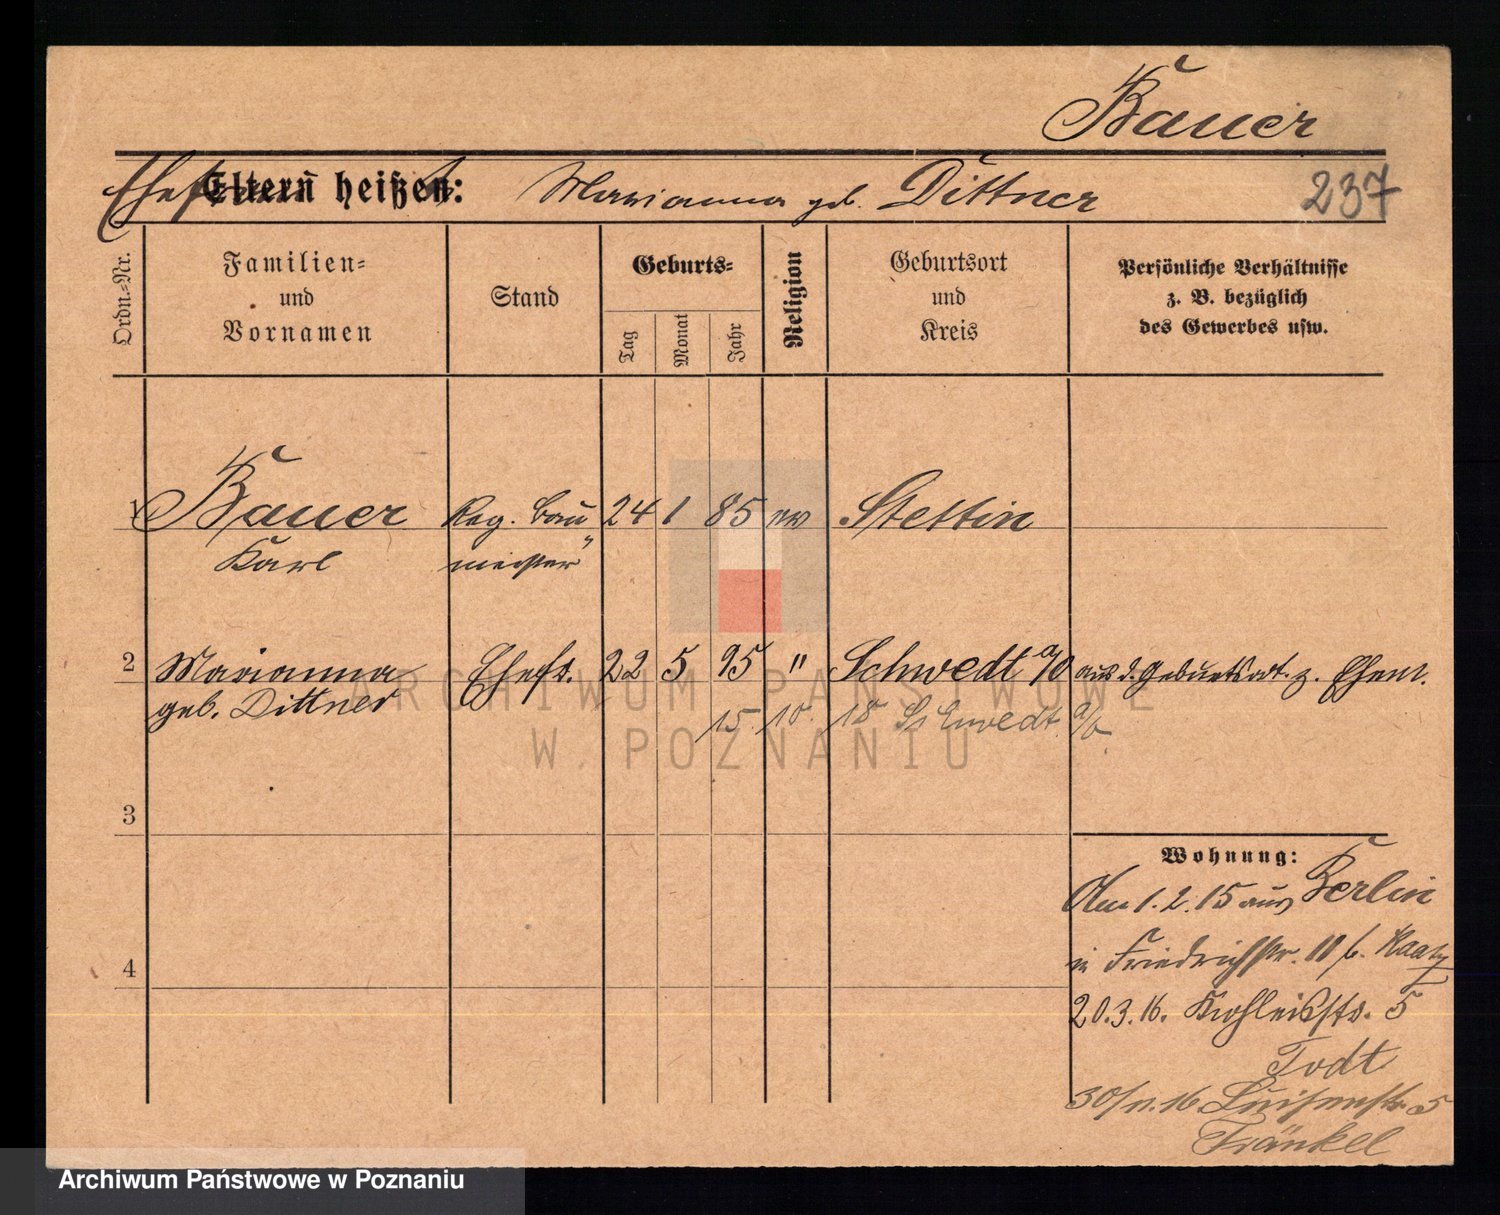 Bauer
Eltern heißen: Marianna geb. Dittner
237
Ordn.-Nr.
Familien-
und
Vornamen
Stand
Geburts-
Tag
Monat
Jahr
Religion
Geburtsort
und
Kreis
Persönliche Verhältnisse
z. B. bezüglich
des Gewerbes usw.
1 Bauer Reg. Bau 24 1 85 ev Stettin
Karl meister
2 Marianna Ehefr. 22 5 95 " Schwedt a/O aus d. Geburtsort. z. Ehem.
geb. Dittner
15. 10. 18 Schwedt a/O.
3
4
Wohnung:
Am 1. 2. 15 aus Berlin
in Friedrichstr. 11 b. Kaatz
20.3.16. 5
Todt
30/11.16 Luisenstr 5
Fränkel
ARCHIWUM PAŃSTWOWE
W. POZNANIU
Archiwum Państwowe w Poznaniu